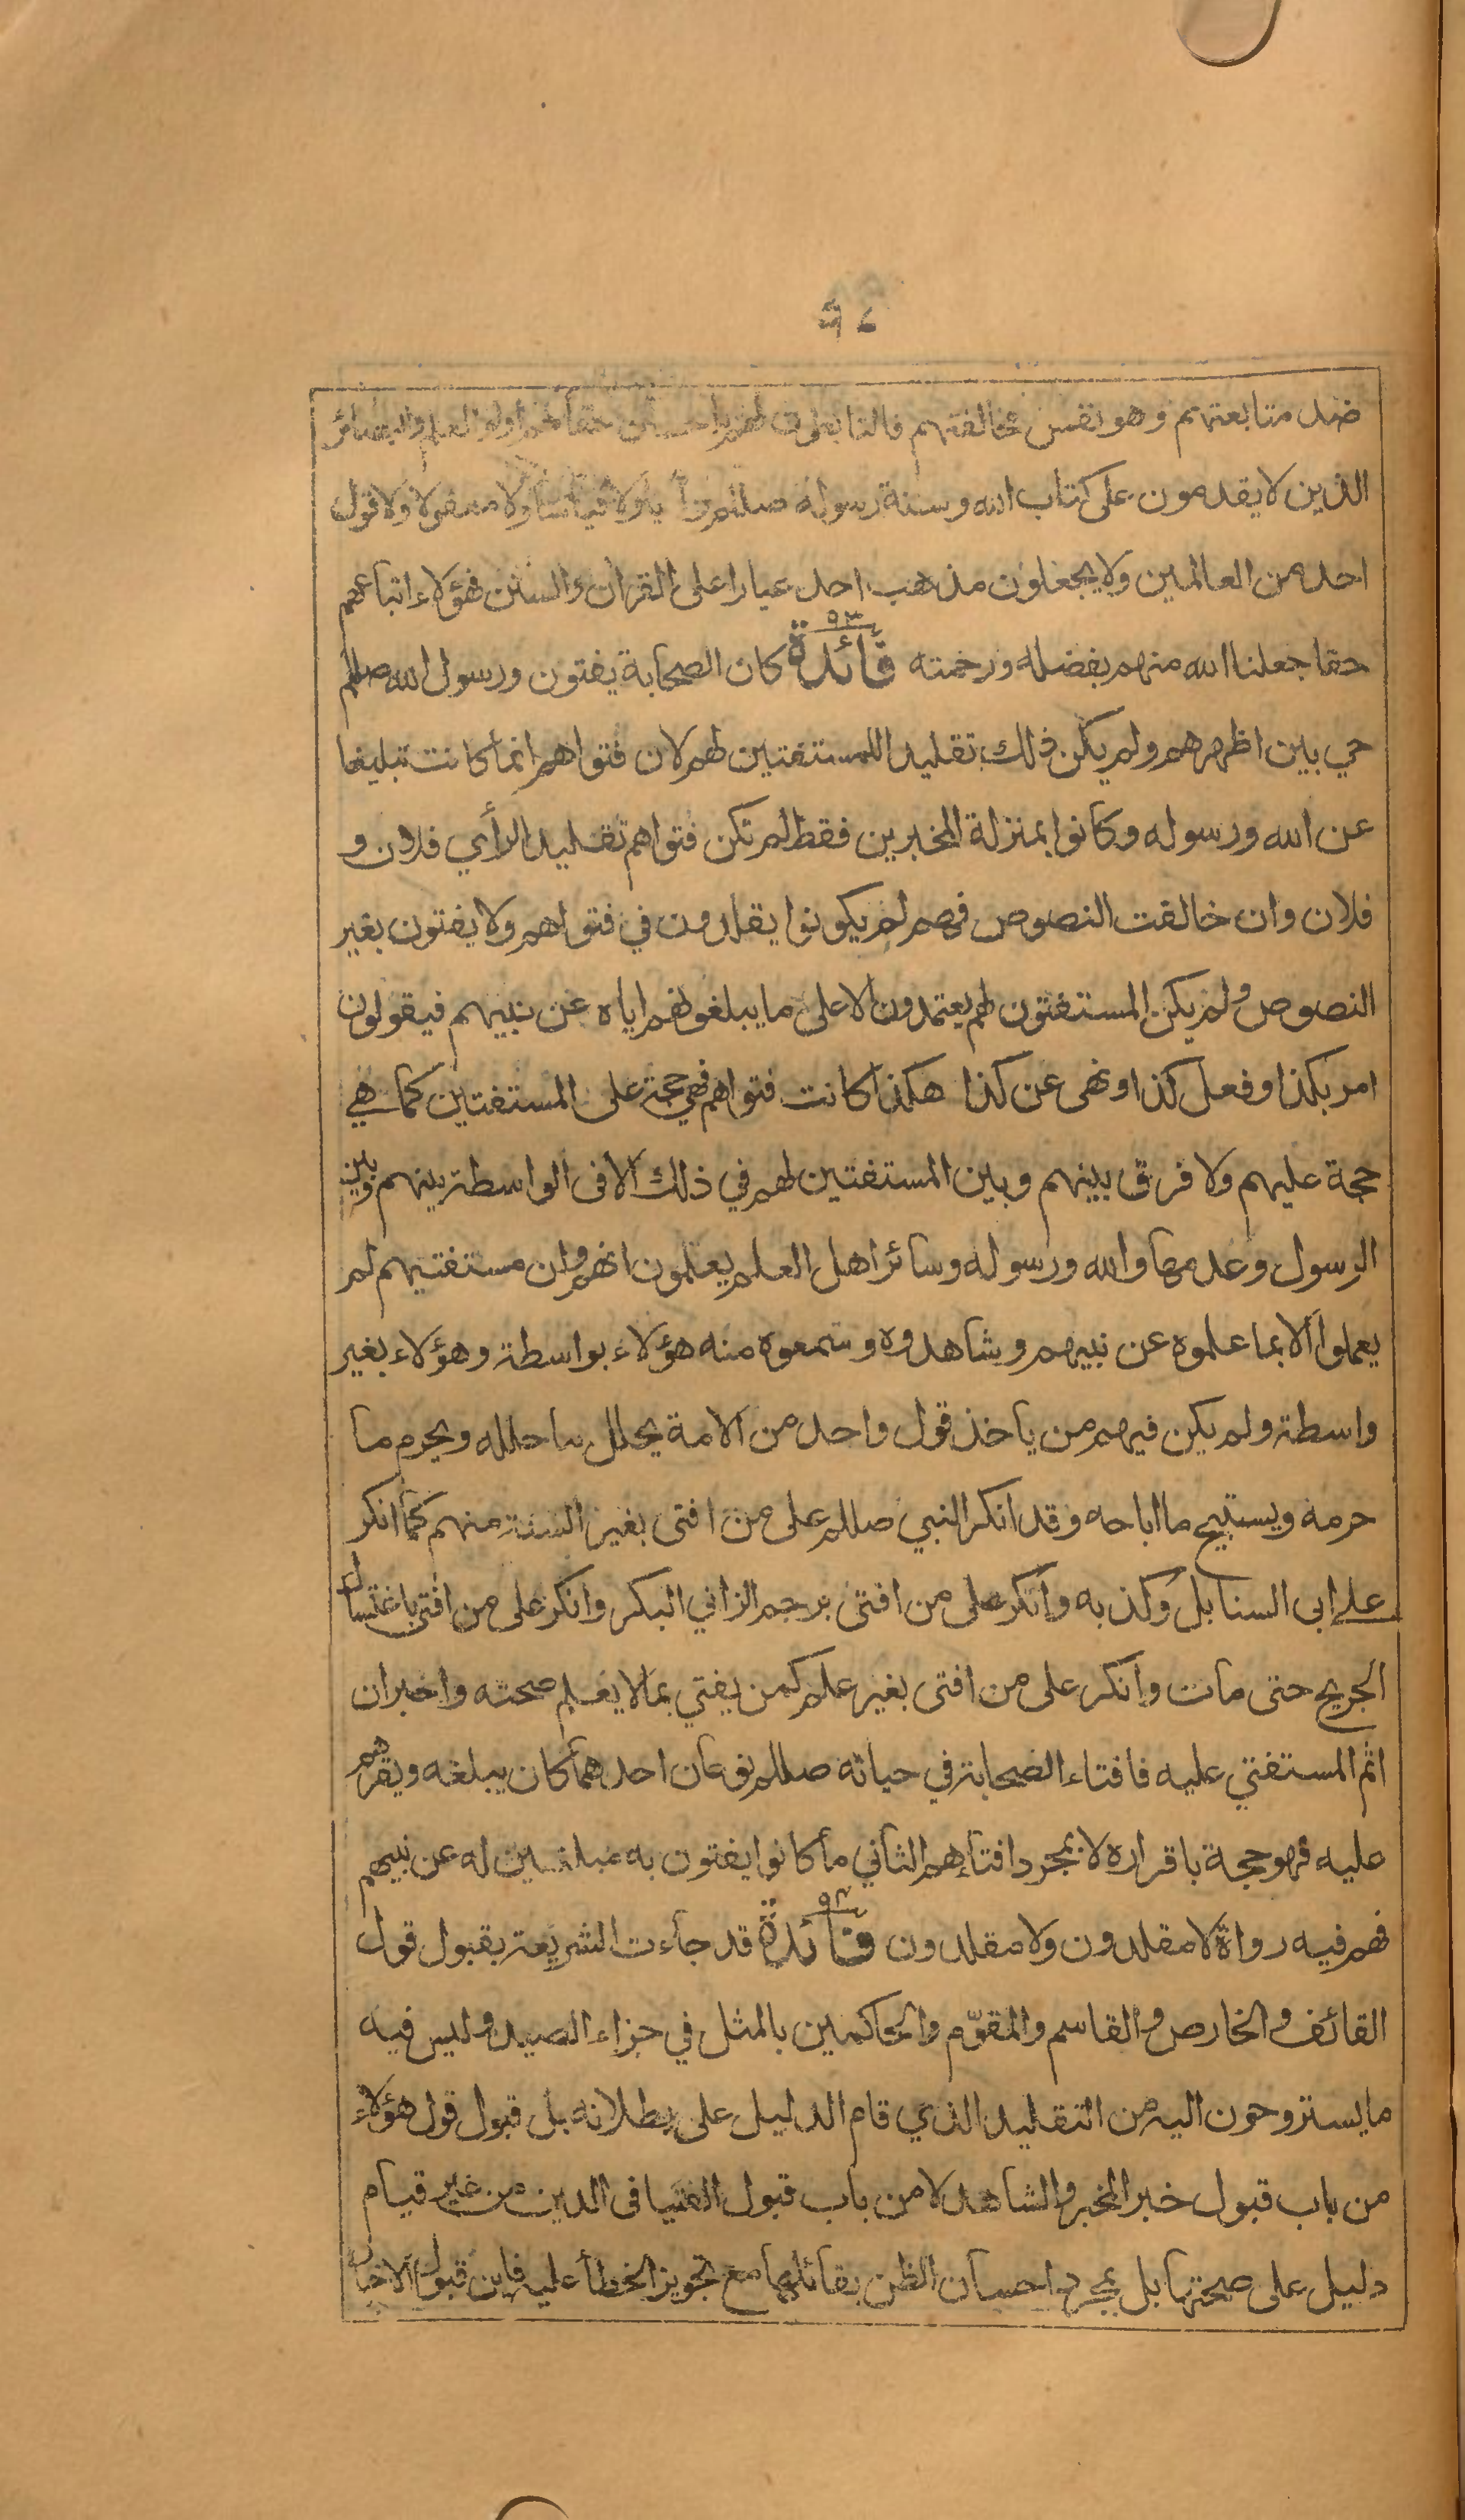 ضد متابعتهم وهو نفس مخالفتهم فالتابعون لهم باحسان حقا هم اولو العلم والبصائر
الذين لا يقدمون على كتاب الله وسنة رسوله صللم رأيا ولا قياسا ولا معقولا ولا قول
احد من العالمين ولا يجعلون مذهب احد عيارا على القران والسنن فهؤلاء اتباعهم
حقا جعلنا الله منهم بفضله ورحمته فائدة ٥٣ كان الصحابة يفتون ورسول الله صللم
حي بين اظهرهم ولم يكن ذلك تقليدا للمستفتين لهم لان فتواهم انما كانت تبليغا
عن الله ورسوله وكانوا بمنزلة المخبرين فقط لم تكن فتواهم تقليدا لرأي فلان و
فلان وان خالفت النصوص فهم لم يكونوا يقلدون في فتواهم ولا يفتون بغير
النصوص ولم يكن المستفتون لهم يعتمدون الا على ما يبلغونهم اياه عن نبيهم فيقولون
امر بكذا وفعل كذا ونهى عن كذا هكذا كانت فتواهم فهي حجة على المستفتين كما هي
حجة عليهم ولا فرق بينهم وبين المستفتين لهم في ذلك الا فى الواسطة بينهم وبين
الرسول وعدمها والله ورسوله وسائر اهل العلم يعلمون انهم وان مستفتيهم لم
يعملوا الا بما علموه عن نبيهم وشاهدوه وسمعوه منه هؤلاء بواسطة وهؤلاء بغير
واسطة ولم يكن فيهم من ياخذ قول واحد من الامة يحلل ما حلله ويحرم ما
حرمه ويستبيح ما اباحه وقد انكر النبي صللم على من افتى بغير السنة منهم كما انكر
على ابى السنابل وكذبه وانكر على من افتى برجم الزاني البكر وانكر على من افتى باغتسال
الجريح حتى مات وانكر على من افتى بغير علم كمن يفتي بما لا يعلم صحته واخبر ان
اثم المستفتي عليه فافتاء الصحابة في حياته صللم نوعان احدهما كان يبلغه ويقرهم
عليه فهو حجة باقراره لا بمجرد افتائهم الثاني ما كانوا يفتون به مبلغين له عن نبيهم
فهم فيه رواة لا مقلدون ولا مقلدون فائدة ٥٤ قد جاءت الشريعة بقبول قول
القائف والخارص والقاسم والمقوّم والحاكمين بالمثل في جزاء الصيد وليس فيه
ما يستروحون اليه من التقليد الذي قام الدليل على بطلانه بل قبول قول هؤلاء
من باب قبول خبر المخبر والشاهد لا من باب قبول الفتيا فى الدين من غير قيام
دليل على صحتها بل بمجرد احسان الظن بقائلها مع تجويز الخطأ عليه فاين قبول الاخبار